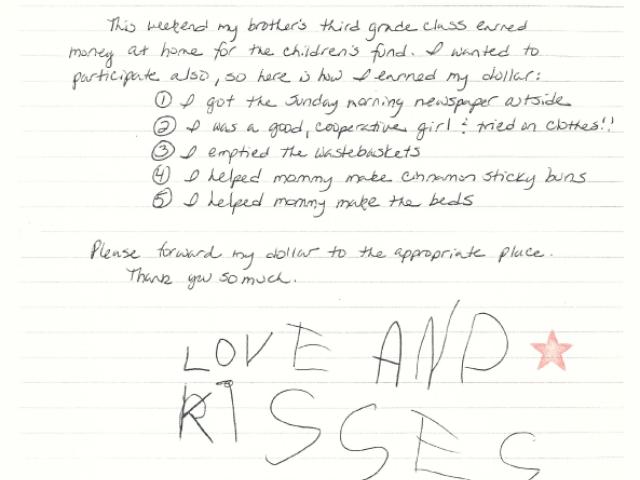 This weekend my brother's third grade class earned
money at home for the children's fund. I wanted to
participate also, so here is how I earned my dollar:
① I got the Sunday morning newspaper outside
② I was a good, cooperative girl & tried on clothes!!
③ I emptied the wastebaskets
④ I helped mommy make cinnamon sticky buns
⑤ I helped mommy make the beds
Please forward my dollar to the appropriate place.
Thank you so much.
LOVE AND
KISSES